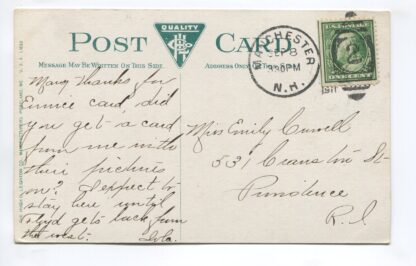 QUALITY
POST CARD
MESSAGE MAY BE WRITTEN ON THIS SIDE
ADDRESS ONLY
MANCHESTER
SEP 8
330PM
1911
N.H.
ONE CENT
Many thanks for
Eunice card, did
you get a card
from me with
their pictures
on? I expect to
stay here until
Floyd gets back from
the west.
Lola.
Miss Emily Curvell
531 Cranston St
Providence
R.I.